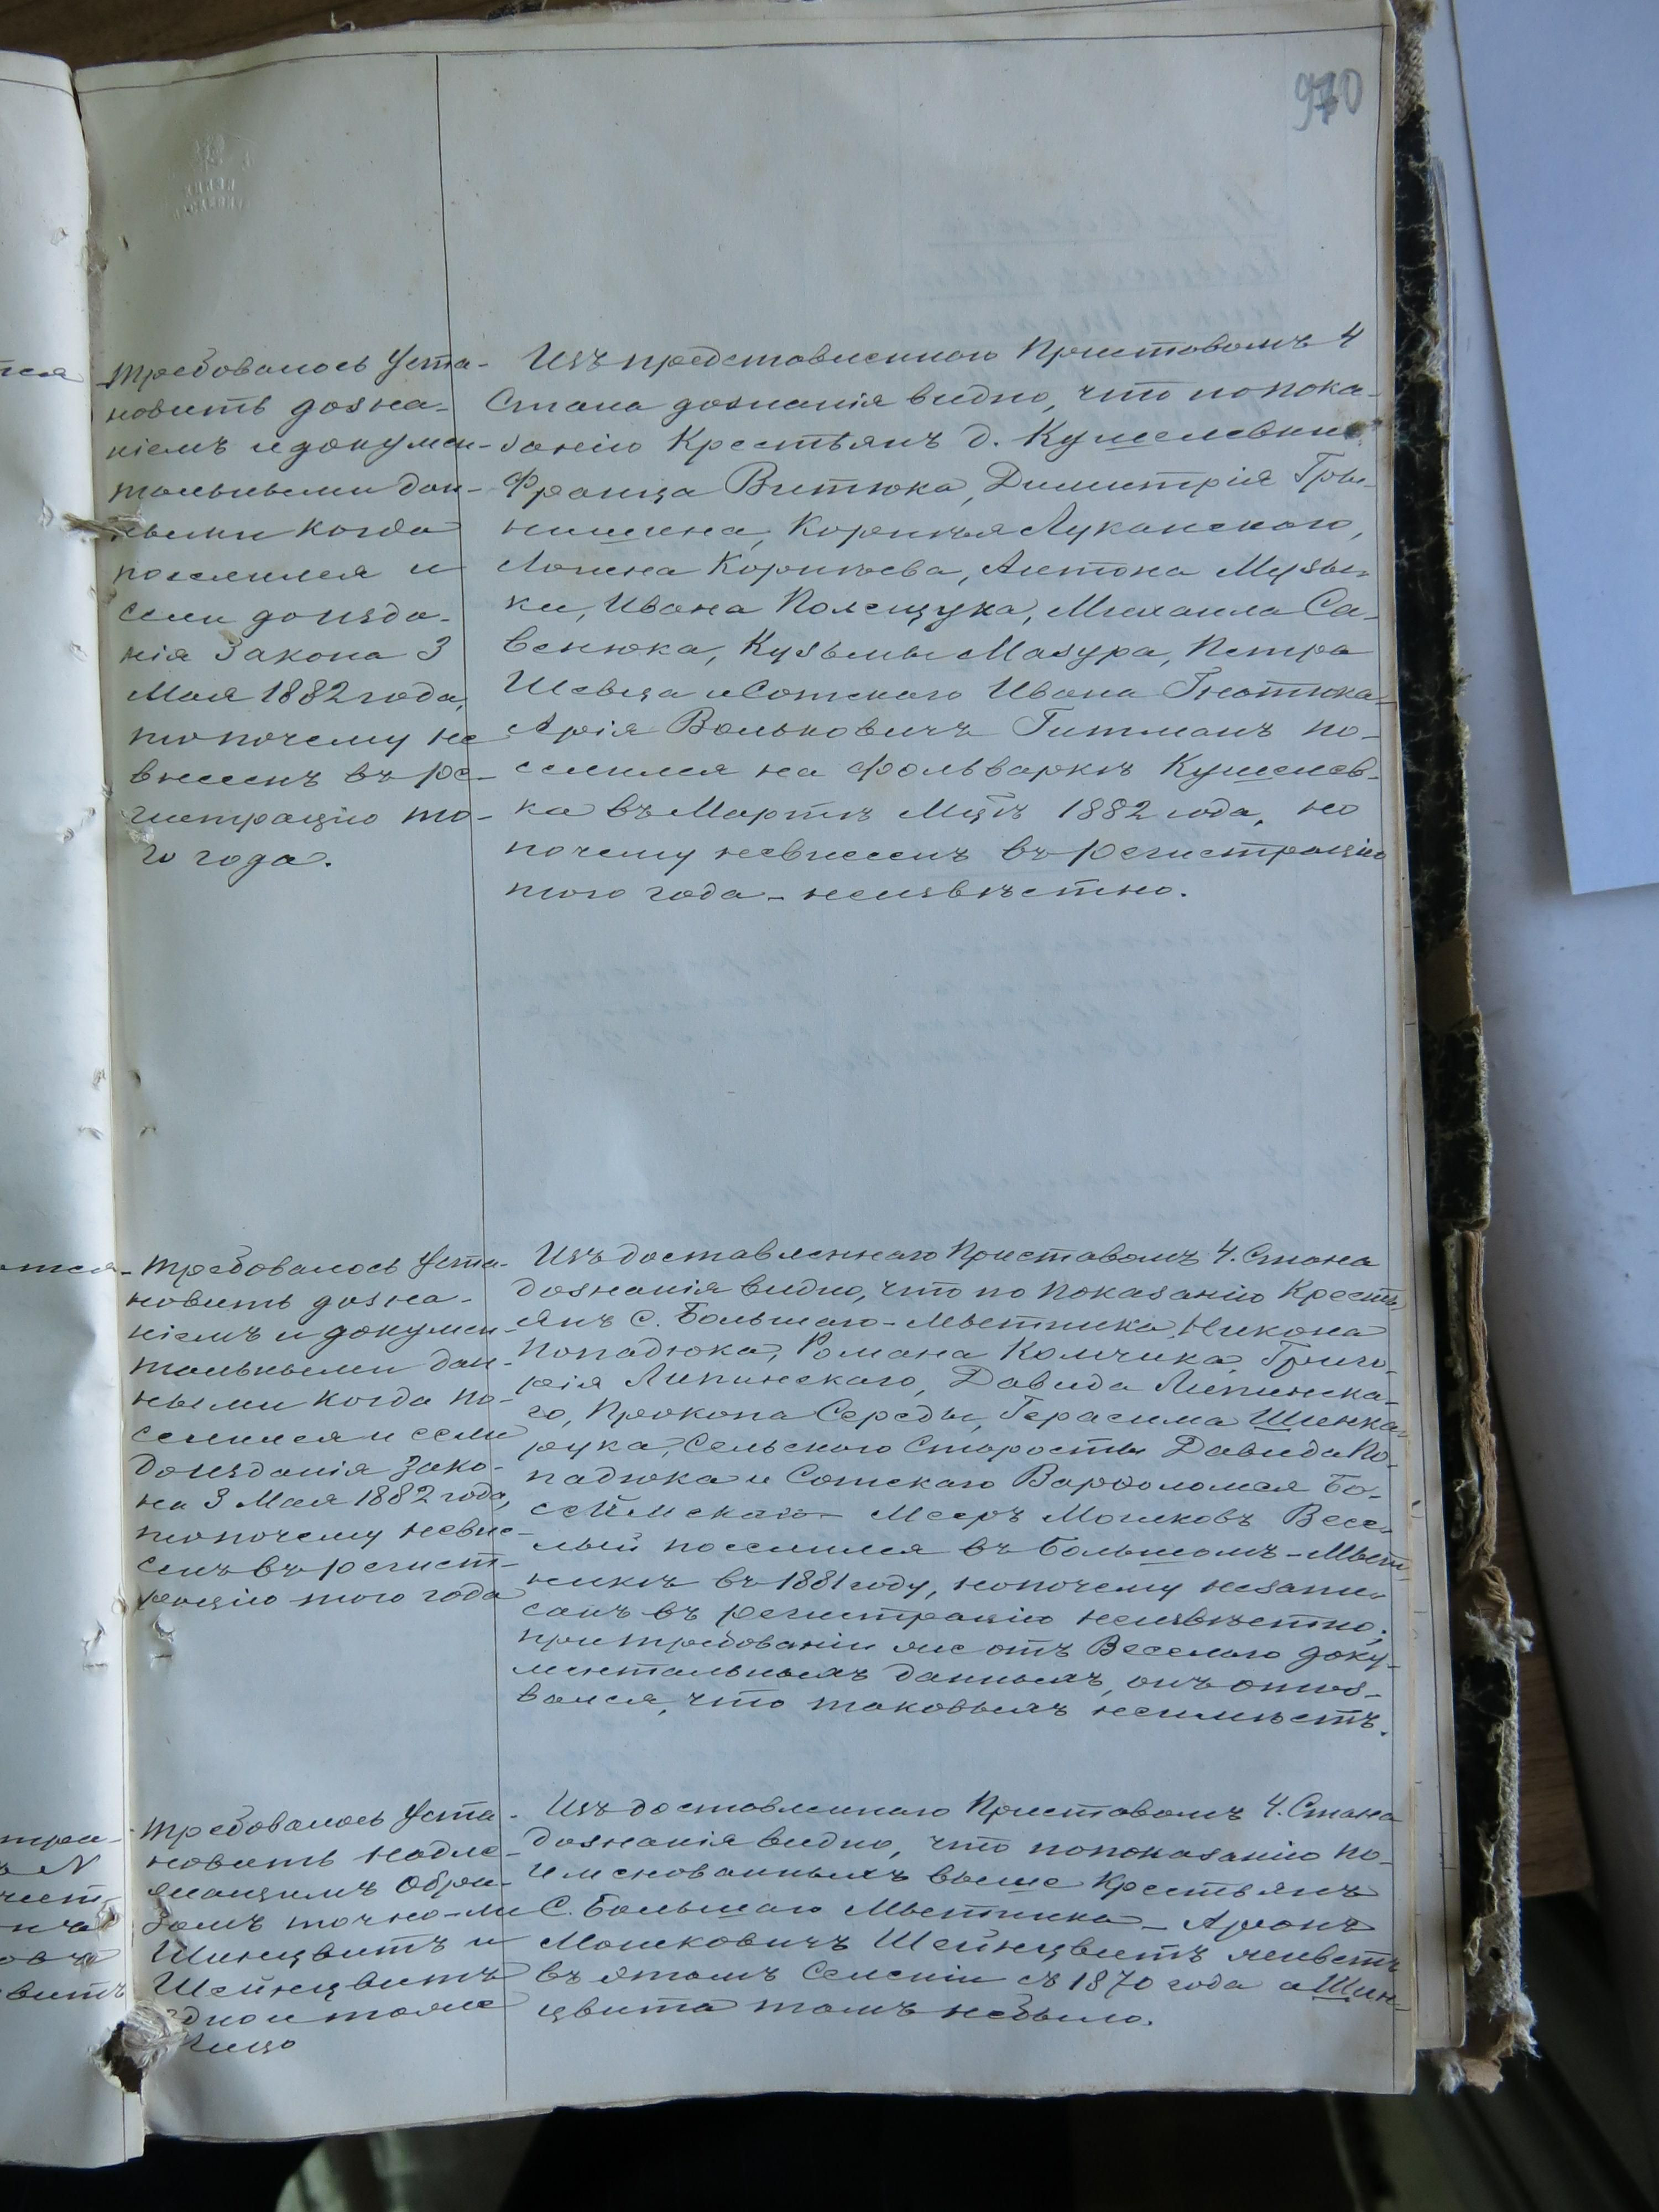 970
Требовалось Уста-
новить дозна-
ніемъ и докумен-
тальными дан-
ными когда
поселился и
если до изда-
нія Закона 3
Мая 1882 года,
то почему не
внесенъ въ ре-
гистрацію то-
го года.
Изъ представленнаго Приставомъ 4
Стана дознанія видно, что по пока-
занію Крестьянъ д. Кушелевки
Франца Витюка, Димитрія Гры-
нишина, Корнѣя Луканскаго,
Логина Корнѣева, Антона Музы-
ки, Ивана Полещука, Михаила Са-
венюка, Кузьмы Мазура, Петра
Шевца и Сотскаго Ивана Гнотюка
Арія Вольковичъ Гитманъ по-
селился на фольваркѣ Кушелев-
ка въ Мартѣ Мцѣ 1882 года, но
почему невнесенъ въ регистрацію
того года - неизвѣстно.
Требовалось Уста-
новить дозна-
ніемъ и докумен-
тальными дан-
ными когда по-
селился и если
до изданія Зако-
на 3 Мая 1882 года,
то почему невне-
сенъ въ регист-
рацію того года
Изъ доставленнаго Приставомъ 4. Стана
дознанія видно, что по показанію Кресть-
янъ С. Большаго-Мытника, Никона
Попадюка, Романа Колчика, Григо-
рія Липинскаго, Давида Липинска-
го, Прокопа Середы, Герасима Шинка-
рука, Сельскаго Старосты Давида По-
падюка и Сотскаго Варфоломея Бо-
сеймскаго - Мееръ Мошковъ Весе-
лый поселился въ Большомъ-Мыт-
никѣ въ 1881 году, но почему незапи-
санъ въ регистрацію неизвѣстно;
при требованіи же отъ Веселаго доку-
ментальныхъ данныхъ, онъ отоз-
вался, что таковыхъ неимѣетъ.
Требовалось Уста-
новить надле-
жащимъ Обра-
зомъ точно-ли
Шинцвитъ и
Шейнцвитъ
одно и тоже
Лицо
Изъ доставленнаго Приставомъ 4. Стана
дознанія видно, что по показанію по-
именованныхъ выше Крестьянъ
С. Большаго Мытника - Аронъ
Мошковичъ Шейнцвитъ живетъ
въ этомъ Селеніи съ 1870 года а Шин-
цвита тамъ небыло.